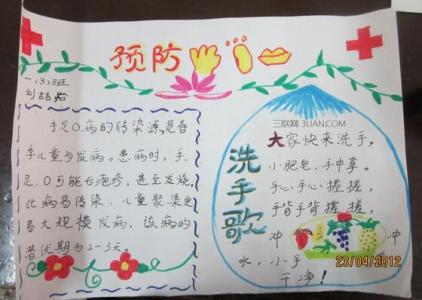 预防
一(3)班
刘喆岩
手足O病的传染源,是春
季儿童多发病。患病时,手、
足、O可能长疱疹,甚至发烧。
此病易传染、儿童聚集更
易大规模发病、该病的
潜伏期为2-3天。
三联网 3LIAN.COM
洗手歌
大家快来洗手,
小肥皂,手中拿。
手心手心搓搓,
手背手背搓搓,
冲冲
水,小手
干净!
23/04/2012